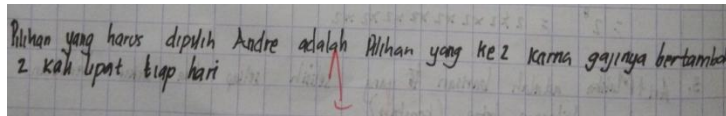 Pilihan yang harus dipilih Andre adalah Pilihan yang ke 2 karna gajinya bertambah
2 kali lipat tiap hari